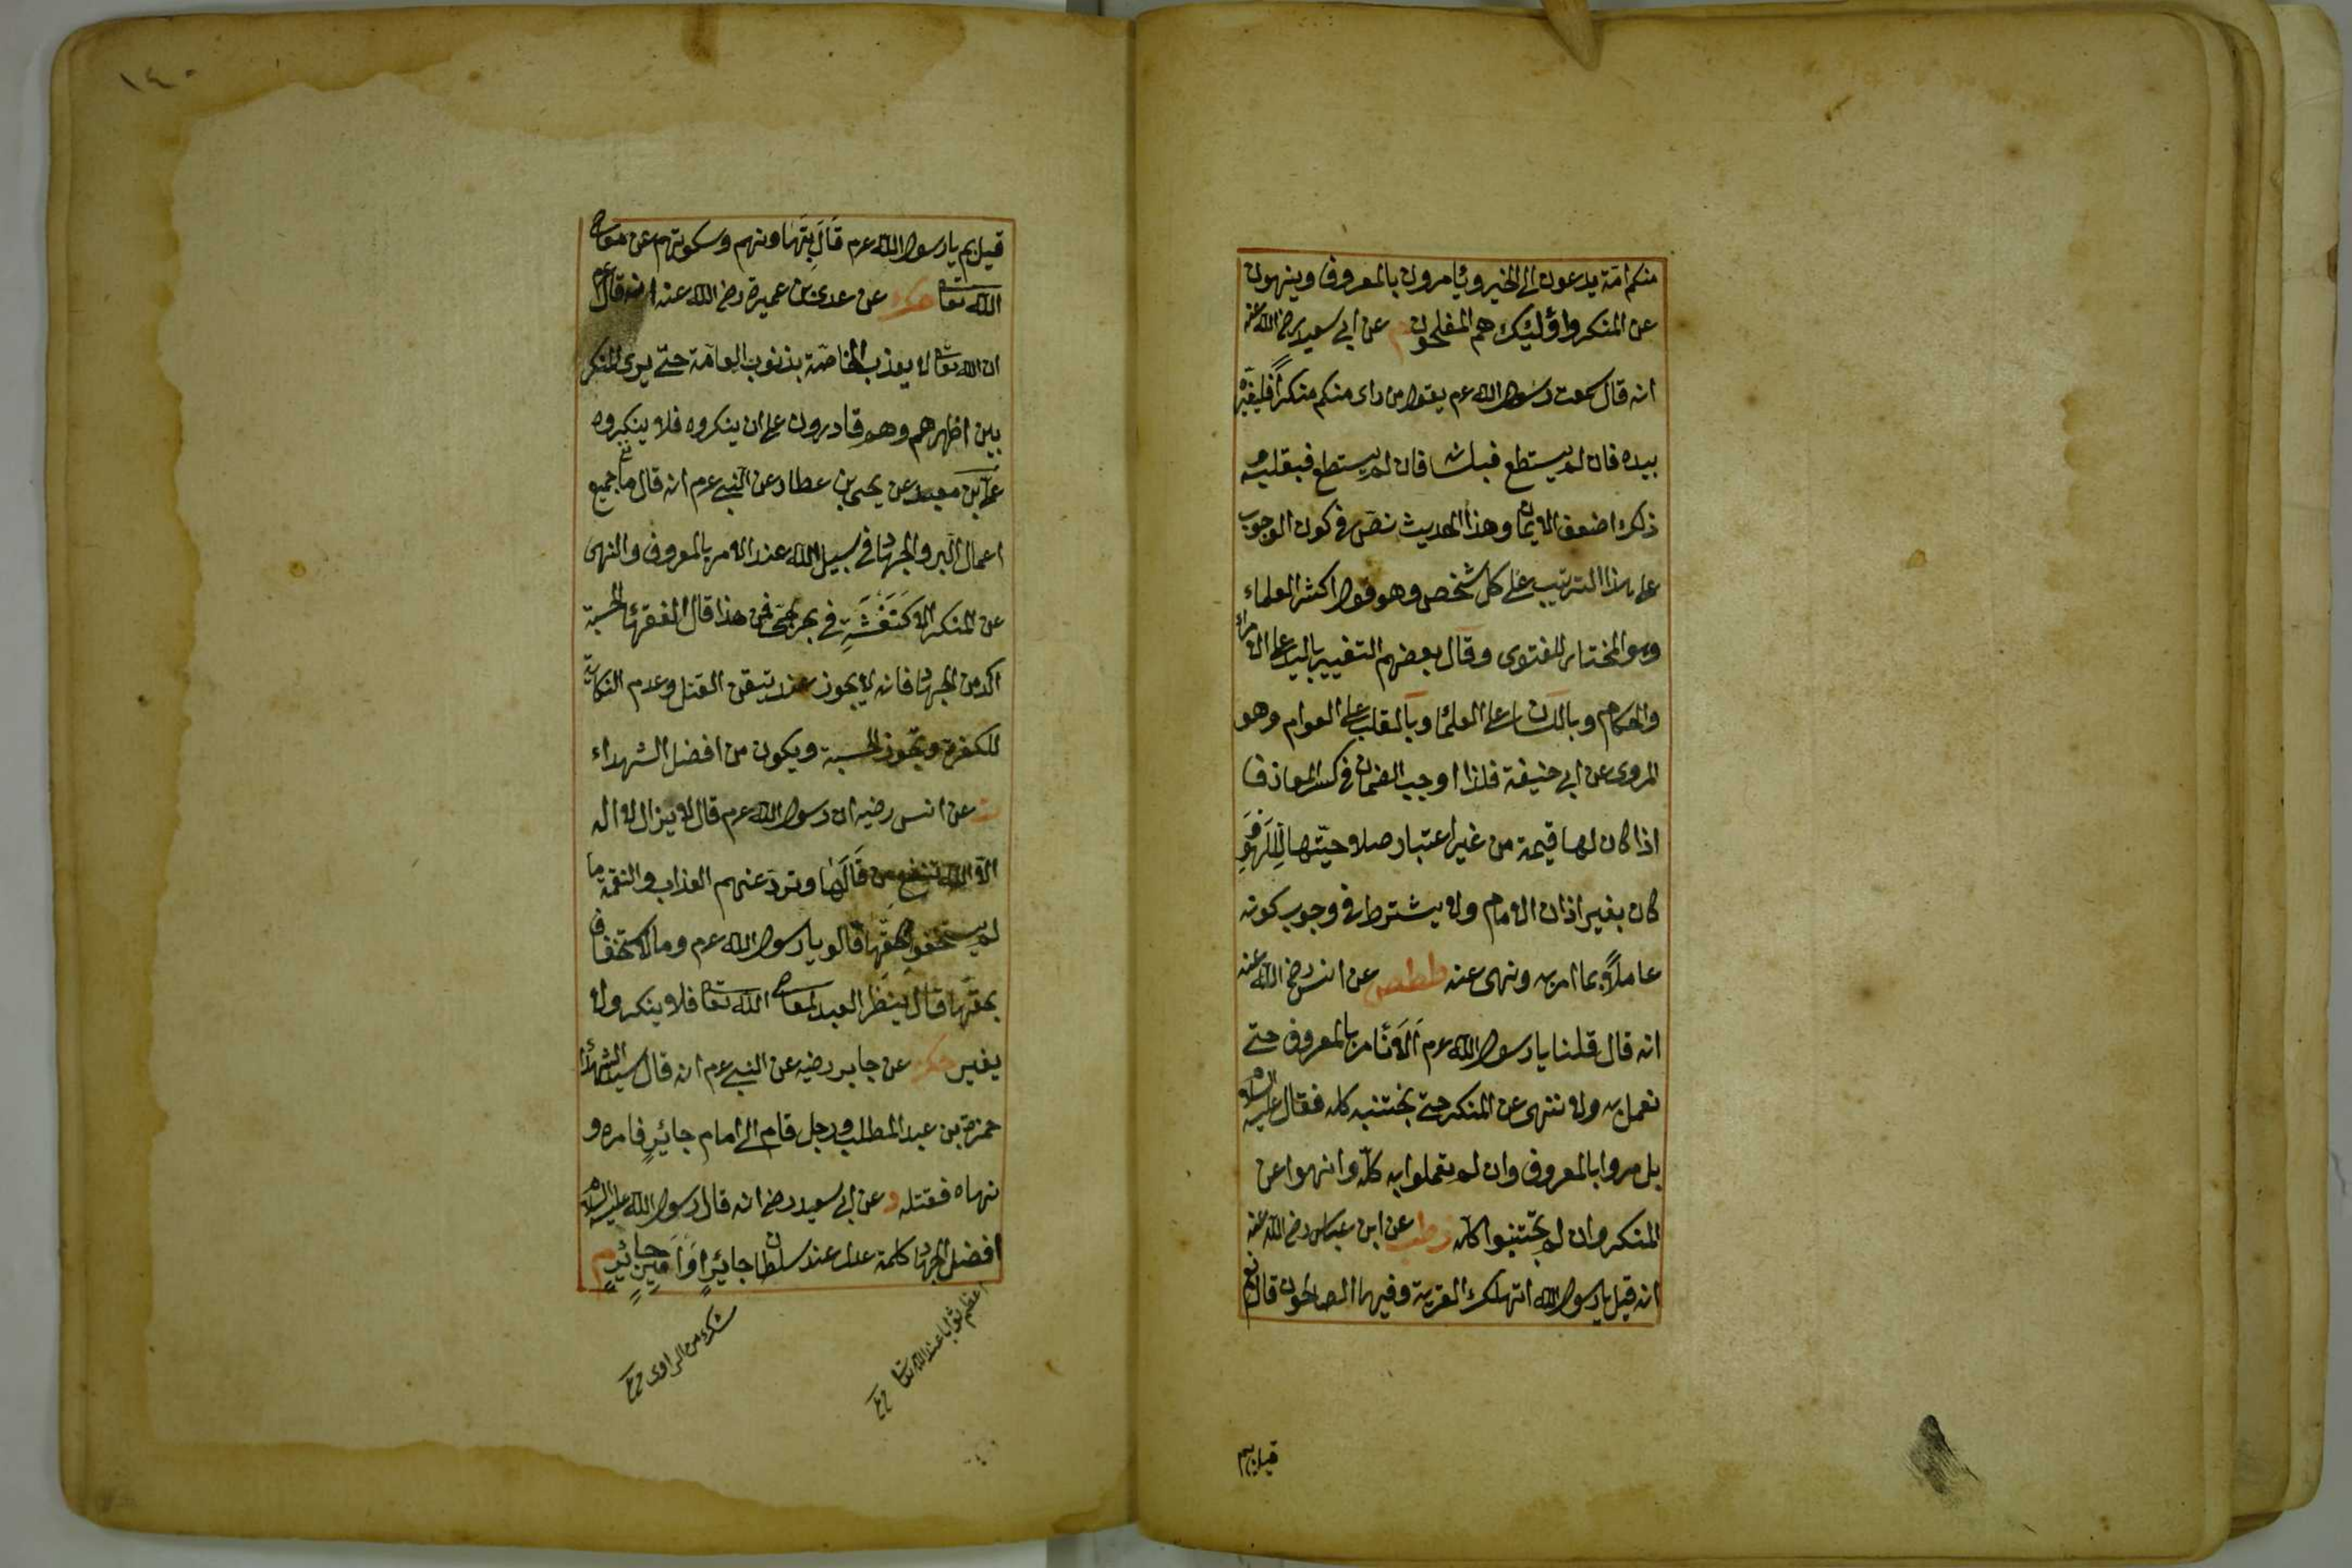 منكم امة يدعون الى الخير ويأمرون بالمعروف وينهون
عن المنكر واولئك هم المفلحون م عن ابي سعيد رضى الله عنه
انه قال سمعت رسول الله عرم يقول من راى منكم منكرا فليغيره
بيده فان لم يستطع فبلسانه فان لم يستطع فبقلبه و
ذلك اضعف الايمان وهذا الحديث نص فى كون الوجوب
على هذا الترتيب على كل شخص وهو قول اكثر العلماء
وهو المختار للفتوى وقال بعضهم التغيير باليد على الامراء
والحكام وباللسان على العلماء وبالقلب على العوام وهو
المروى عن ابي حنيفة فلذا اوجب الضمان فى كسر المعازف
اذا كان لها قيمة من غير اعتبار صلاحيتها للهو و
كان بغير اذان الامام ولا يشترط فى وجوبه كونه
عاملا بما امر به ونهى عنه ططص عن انس رضى الله عنه
انه قال قلنا يا رسول الله عرم الا نأمر بالمعروف حتى
نعمل به ولا ننهى عن المنكر حتى نجتنبه كله فقال عليه السلام
بل مروا بالمعروف وان لم تعملوا به كله وانهوا عن
المنكر وان لم تجتنبوا كله زطب عن ابن عباس رضى الله عنه
انه قيل يا رسول الله اتهلك القرية وفيها الصالحون قال نعم
قيل بم
١٤٠
قيل بم يا رسول الله عرم قال بتهاونهم وسكوتهم عن معاصى
الله تعا حدك عن عدى بن عميرة رضى الله عنه انه قال عرم
ان الله تعا لا يعذب الخاصة بذنوب العامة حتى يرى المنكر
بين اظهرهم وهم قادرون على ان ينكروه فلا ينكروه
على بن معبد عن يحيى بن عطار عن النبى عرم انه قال ما جميع
اعمال البر والجهاد فى سبيل الله عند الامر بالمعروف والنهى
عن المنكر الا كنفثة فى بحر لجى فمن هذا قال الفقهاء الحسبة
اكد من الجهاد فانه لا يجوز عند تيقن القتل وعدم النكاية
للكفرة وتجوز الحسبة ويكون من افضل الشهداء
عن انس رضيه ان رسول الله عرم قال لا يزال لا اله
الا الله تنفع من قالها وترد عنهم العذاب والنقمة ما
لم يستخفوا بحقها قالوا يا رسول الله عرم وما الاستخفاف
بحقها قال ينظر العبد لمعاصى الله تعا فلا ينكر ولا
يغير حك عن جابر رضيه عن النبى عرم انه قال سيد الشهداء
حمزة بن عبد المطلب ورجل قام الى امام جائر فامره و
نهاه فقتله د عن ابي سعيد رضى انه قال رسول الله عليه السلام
افضل الجهاد كلمة عدل عند سلطان جائر او امير جائر م
اعظم ثوابا عند الله تعا
شك من الراوى